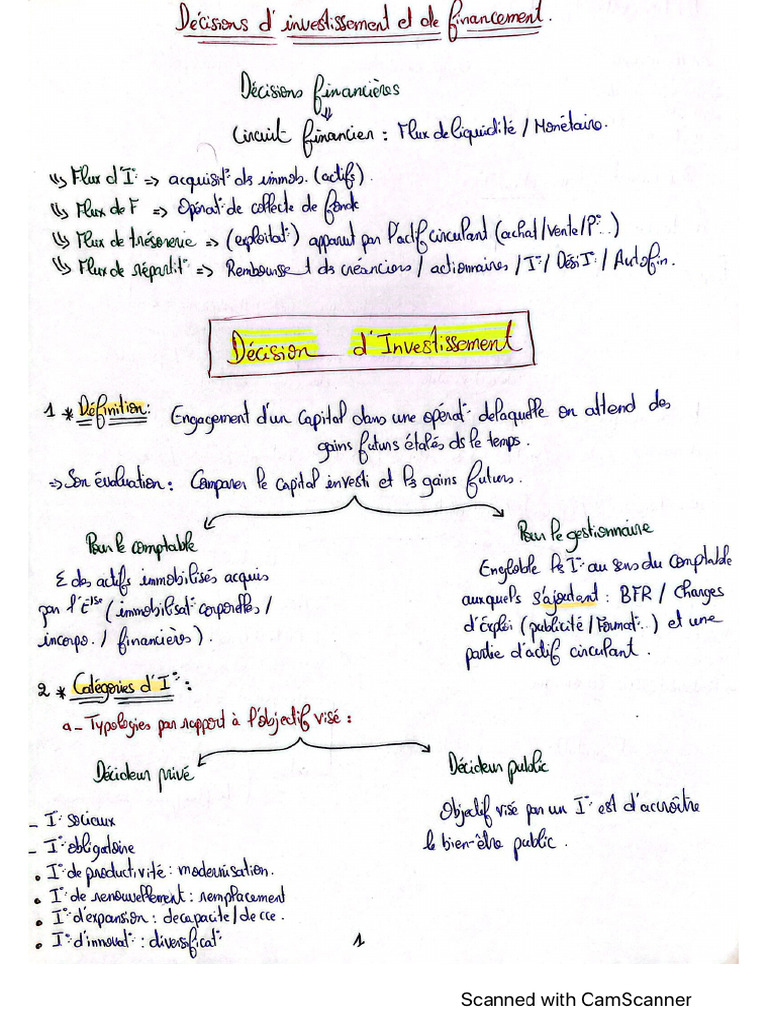 Décisions d'investissement et de financement.
Décisions financières
⇓
Circuit financier : Flux de liquidité / Monétaire.
Flux d'I° => acquisit° ds immob. (actifs).
Flux de F => Opérat° de collecte de fonds
Flux de trésorerie => (exploitat°) apparut par l'actif circulant (achat/vente/P°...)
Flux de répartit° => Rembourse t ds créanciers / actionnaires / I° / Dési I° / Autofin.
Décision d'Investissement
1 * Définition : Engagement d'un Capital dans une opérat° de laquelle on attend des
gains futurs étalés ds le temps.
=> Son évaluation : Comparer le capital investi et ls gains futurs.
Pour le comptable
Σ des actifs immobilisés acquis
par l'E/se (immobilisat° corporelles /
incorpo. / financières).
Pour le gestionnaire
Englobe ls I° au sens du comptable
auxquels s'ajoutent : BFR / Charges
d'exploi (publicité / Format°..) et une
partie d'actif circulant.
2 * Catégories d'I° :
a - Typologies par rapport à l'objectif visé :
Décideur privé
- I° sociaux
- I° obligatoire
• I° de productivité : modernisation.
• I° de renouvellement : remplacement
• I° d'expansion : de capacité / de cce.
• I° d'innovat° : diversificat°
Décideur public
Objectif visé par un I° est d'accroître
le bien-être public.
1
Scanned with CamScanner